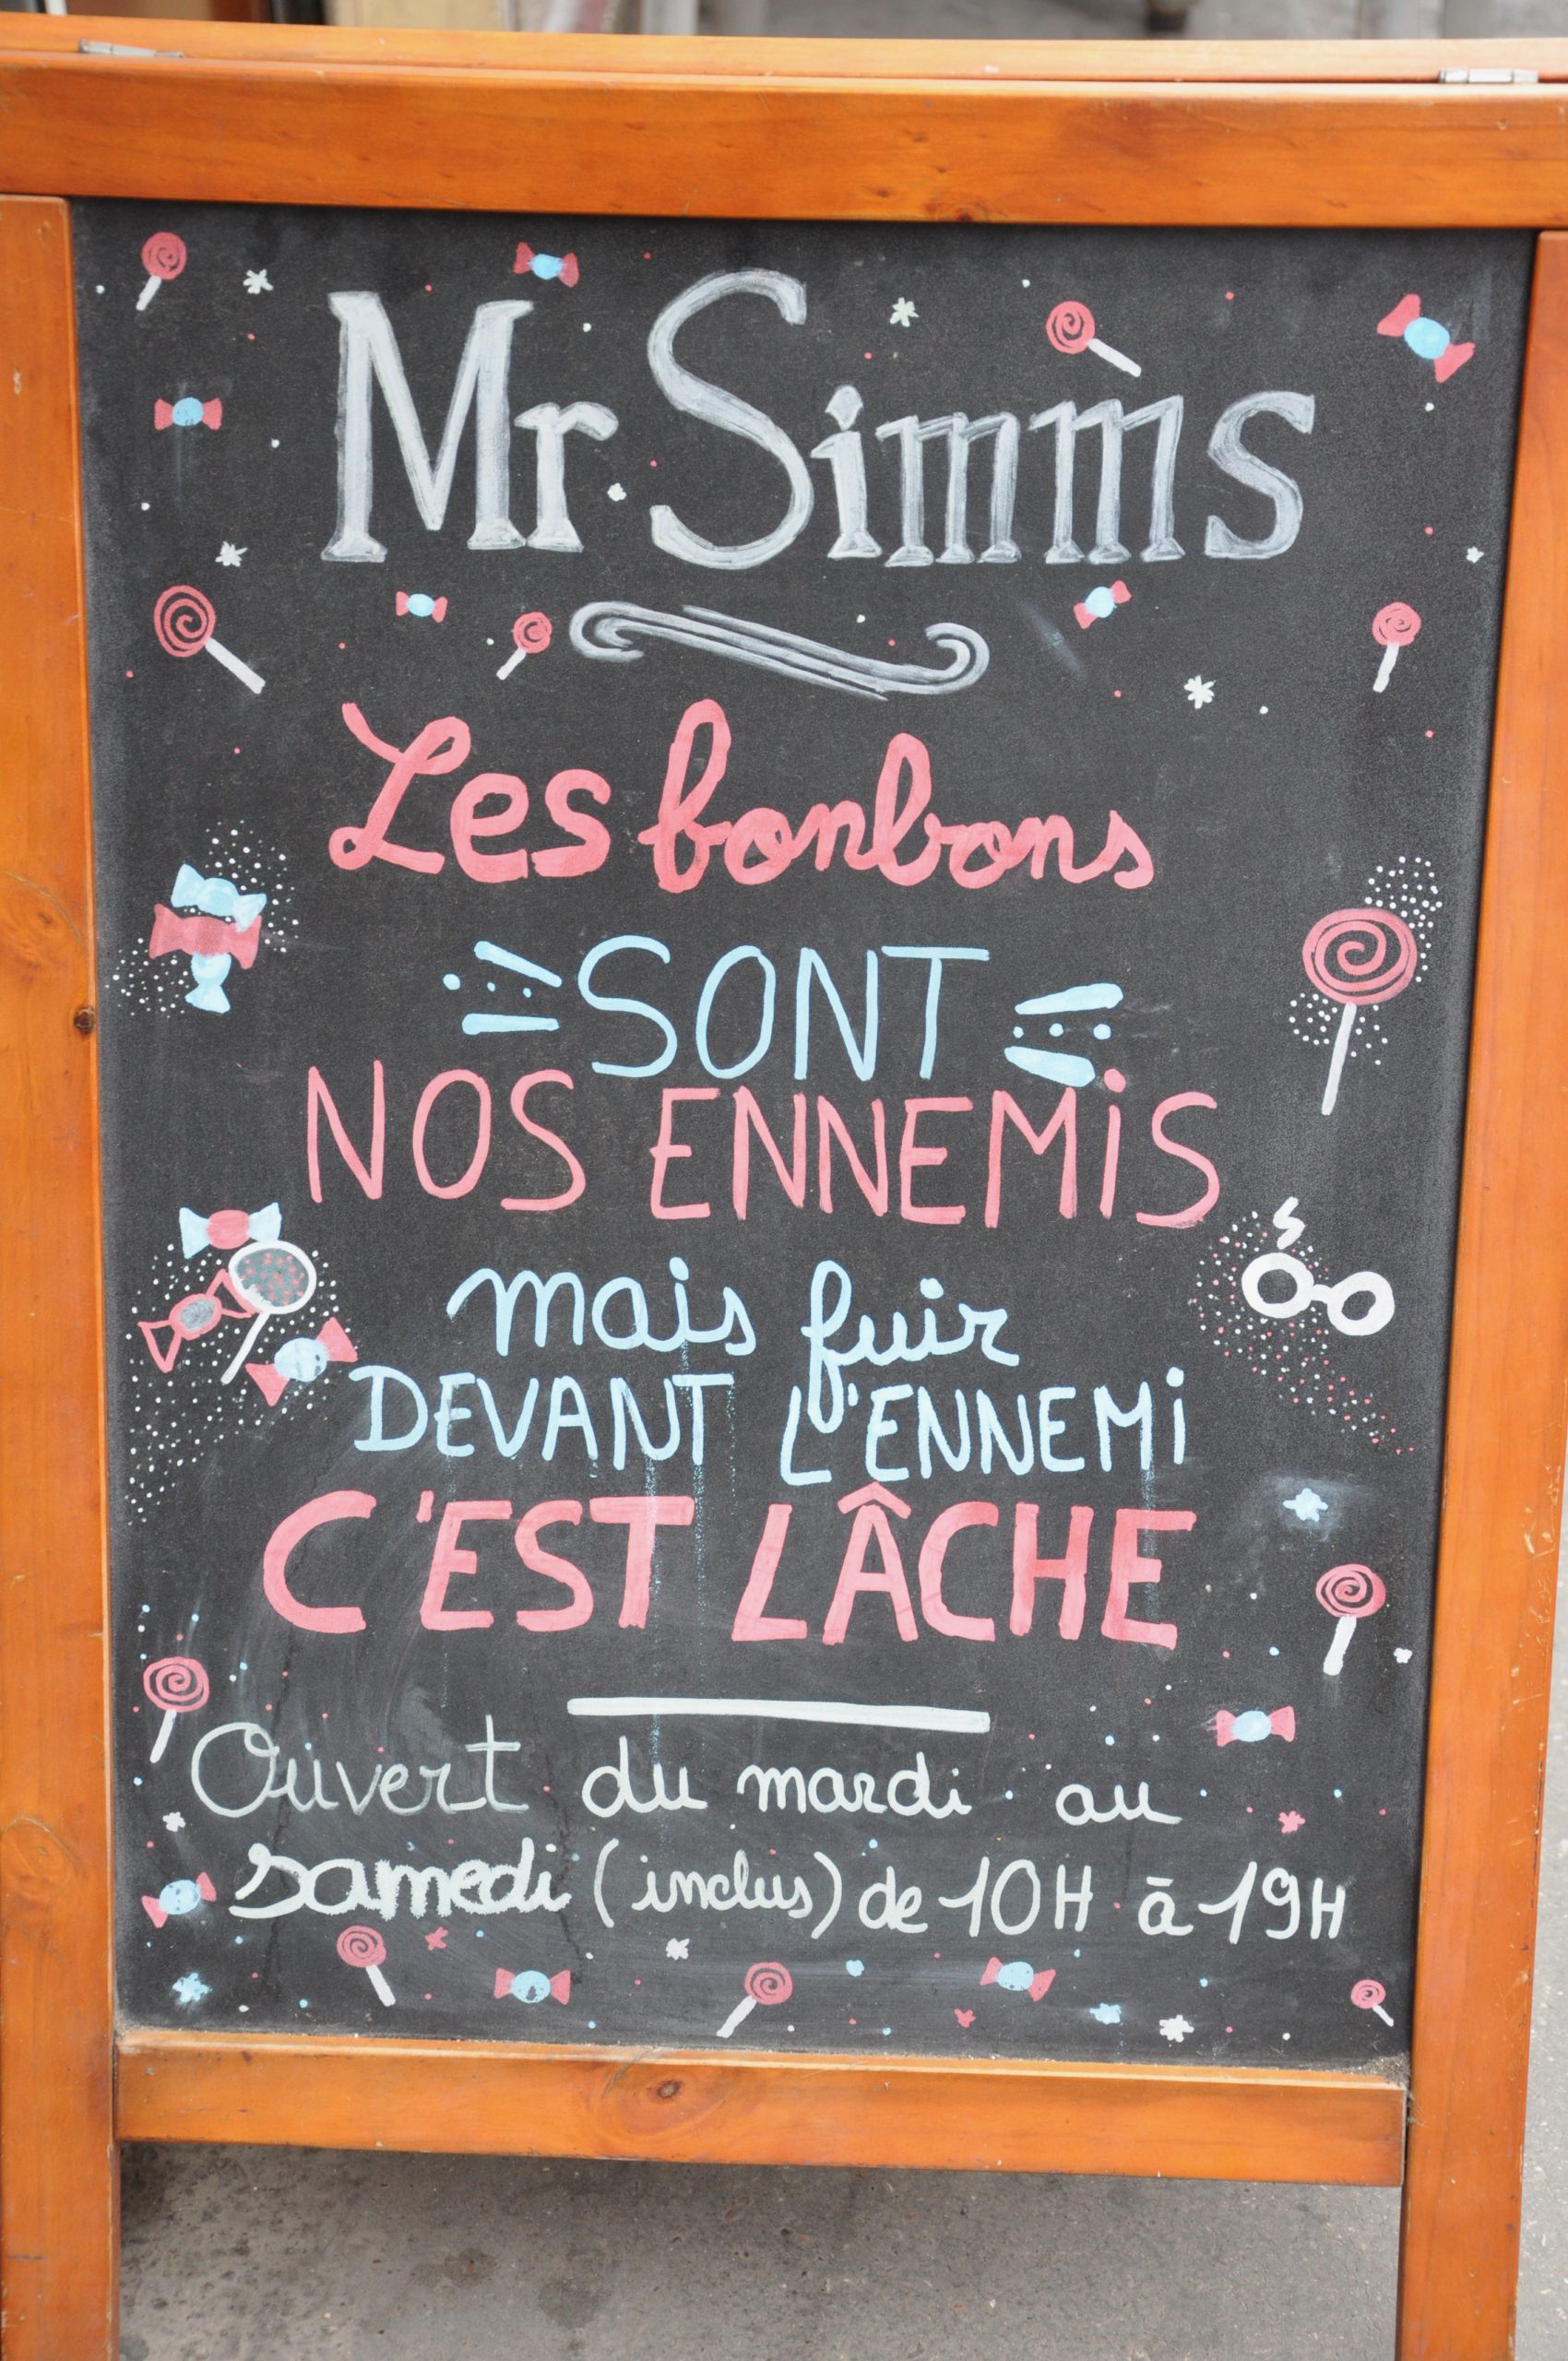 Mr Simms
Les bonbons
SONT
NOS ENNEMiS
mais fuir
DEVANT L'ENNEMi
C'EST LÂCHE
Ouvert du mardi au
samedi (inclus) de 10H à 19H